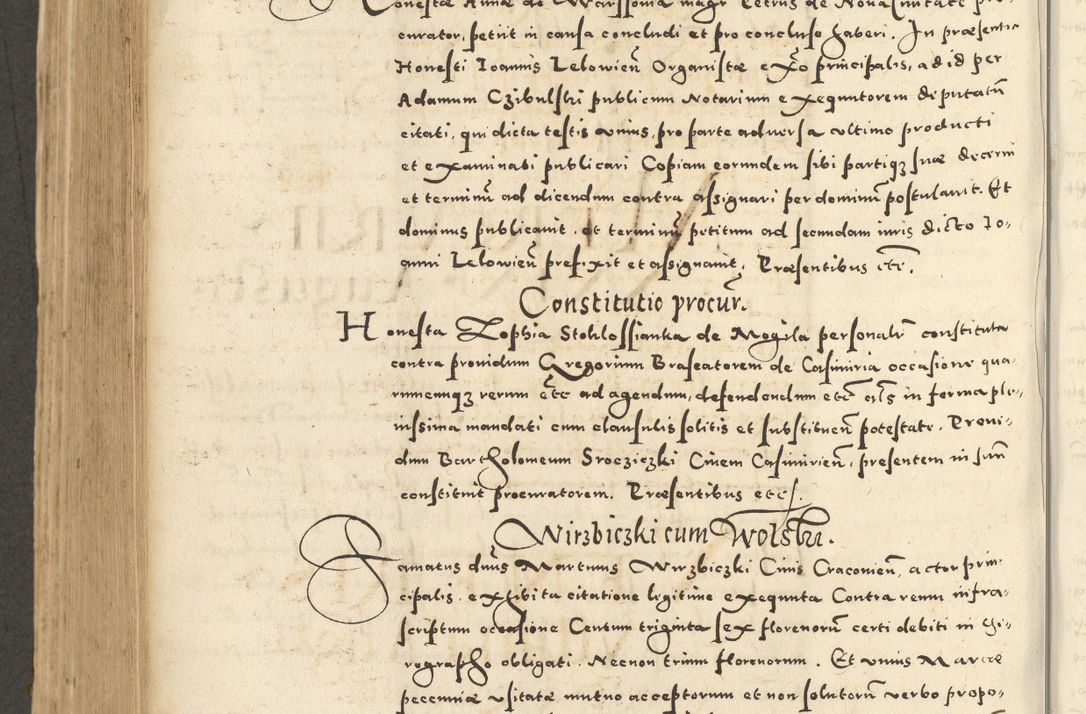 Honestæ Annæ de Warssovia magr Petrus de Nova Civitate pro-
curator, petiit in causa concludi et pro concluso haberi. In præsentia
Honesti Ioannis Lelowień Organistæ ex̃o principalis, ad id per
Adamum Czibulski publicum Notarium exequutorem deputatũ
citati, qui dicta testis unius, pro parte adversa ultimo producti
et examinati publicari Copiam eorundem sibi partiq₃ suæ decerni
et terminũ ad dicendum contra assignari per dominũ postulavit. Et
dominus publicavit, et terminũ petitum ad secundam iuris dicto Io-
anni Lelowień prefixit et assignavit, Præsentibus etc̃.
Constitutio procur̃.
Honesta Zophia Stoklossianka de Mogila personalr̃ constituta
contra providum Gregorium Braseatorem de Casimiria occasione qua-
rumcunq₃ rerum etc̃ ad agendum, defendendum etc̃ in forma ple-
nissima mandati cum clausulis solitis et substituen̄ potestate. Provi-
dum Bartholomeum Srocziczki Civem Casimirień, presentem in suũ
constituit procuratorem. Præsentibus etc.
Wirzbiczki cum Wolski.
Famatus dñus Martinus Wirzbiczki Civis Cracovień, actor prin-
cipalis, exhibita citatione legitime exequuta Contra reum infra-
scriptum occasione Centum triginta sex florenorũ certi debiti in chi-
rographo obligati. Necnon trium florenorum. Et unius Marcæ
pecuniæ usitatæ mutuo acceptorum et non solutorũ verbo propo-